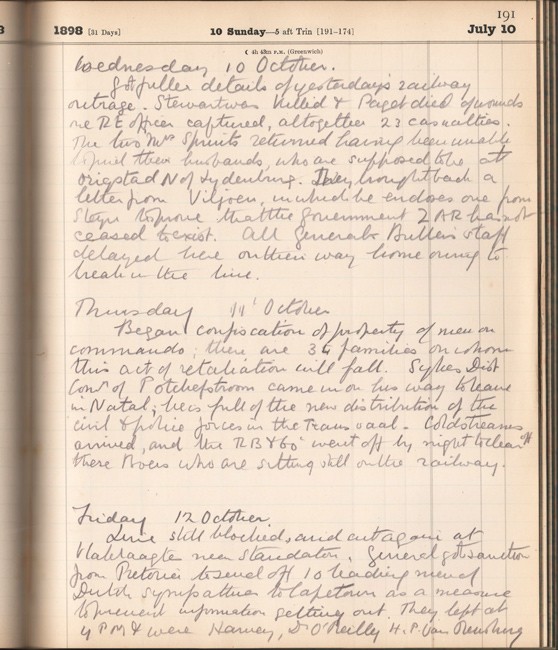 191
1898 [31 Days] 10 Sunday—5 aft Trin [191-174] July 10
☾ 4h 43m P.M. (Greenwich)
Wednesday 10 October.
Got fuller details of yesterday's railway
outrage. Stewart was killed & Paget died of wounds
one RE officer captured, altogether 23 casualties.
The two Mrs Spruits returned having been unable
to find their husbands, who are supposed to be at
Origstad N of Lydenburg. They brought back a
letter from Viljoen, in which he endorses one from
Steyn to prove that the Government ZAR has not
ceased to exist. All General Buller's staff
delayed here on their way home owing to
break in the line.
Thursday 11th October
Began confiscation of property of men on
commando; there are 34 families on whom
this act of retaliation will fall. Sykes Dist
Comr of Potchefstroom came in on his way to leave
in Natal; he is full of the new distribution of the
civil & police forces in the Transvaal. Coldstreams
arrived, and the RB & 60th went off by night to clear off
these Boers who are sitting still on the railway.
Friday 12 October.
Line still blocked, and cut again at
Vlaklaagte near Standerton. General got sanction
from Pretoria to send off 10 leading men of
Dutch sympathies to Capetown as a measure
to prevent information getting out. They left at
4 PM & were Harvey, Dr O'Reilly H.P. Van Rensburg